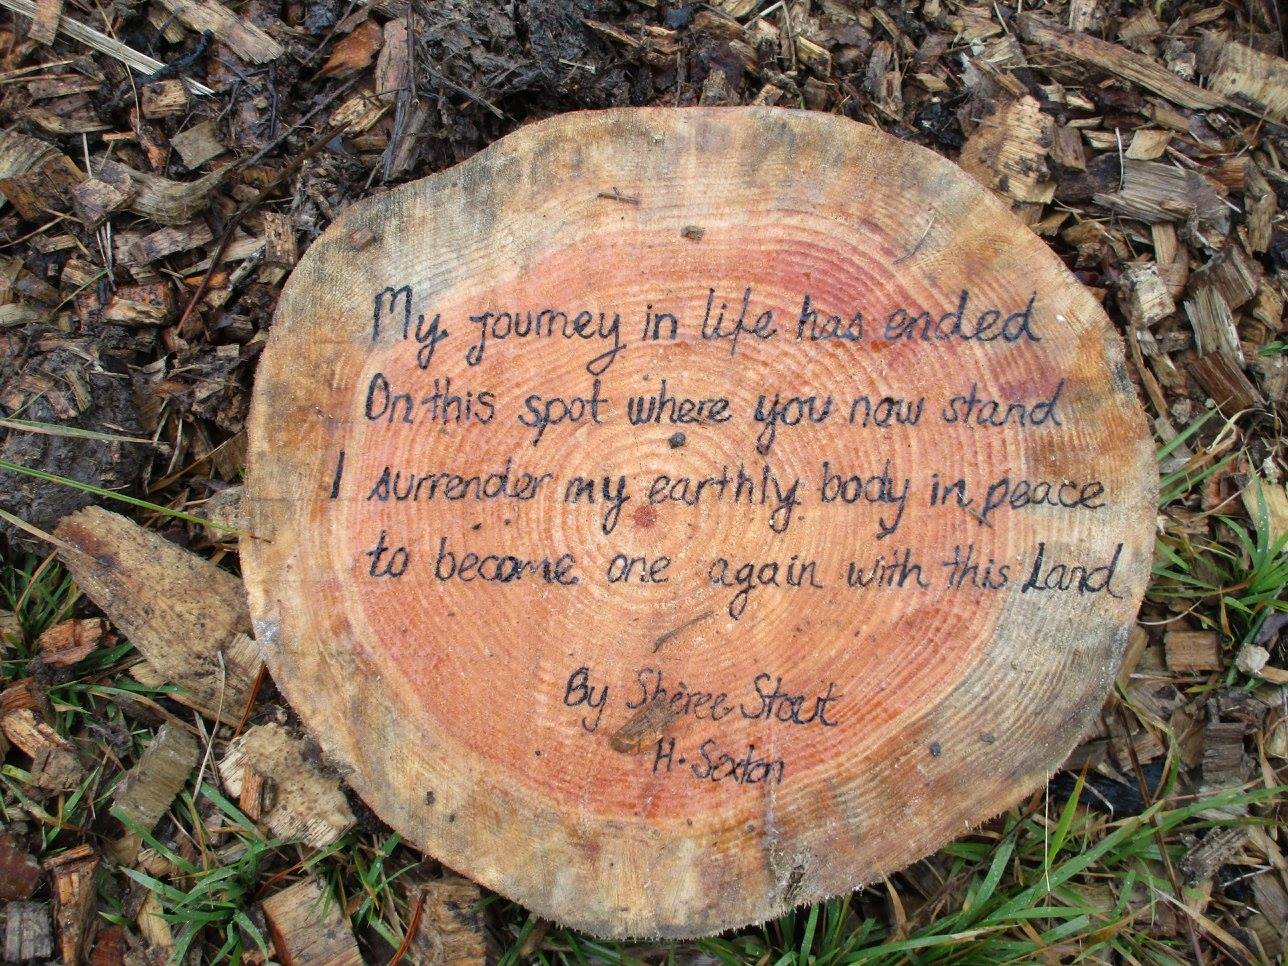 My journey in life has ended
On this spot where you now stand
I surrender my earthly body in peace
to become one again with this Land
By Sheree Stout
H. Sexton